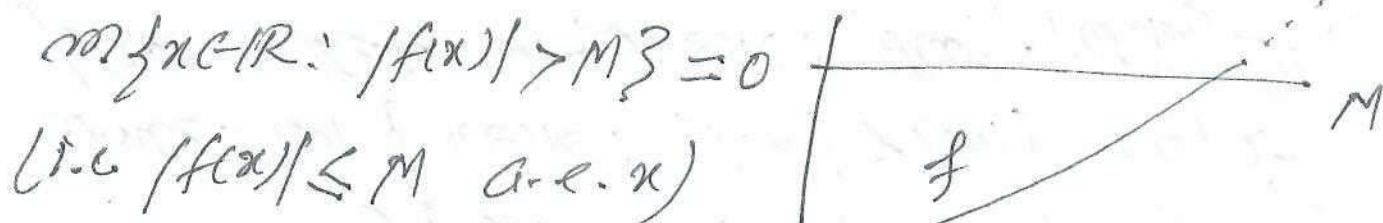 m{x∈ℝ: |f(x)| > M} = 0
(i.e |f(x)| ≤ M a.e. x)
M
f